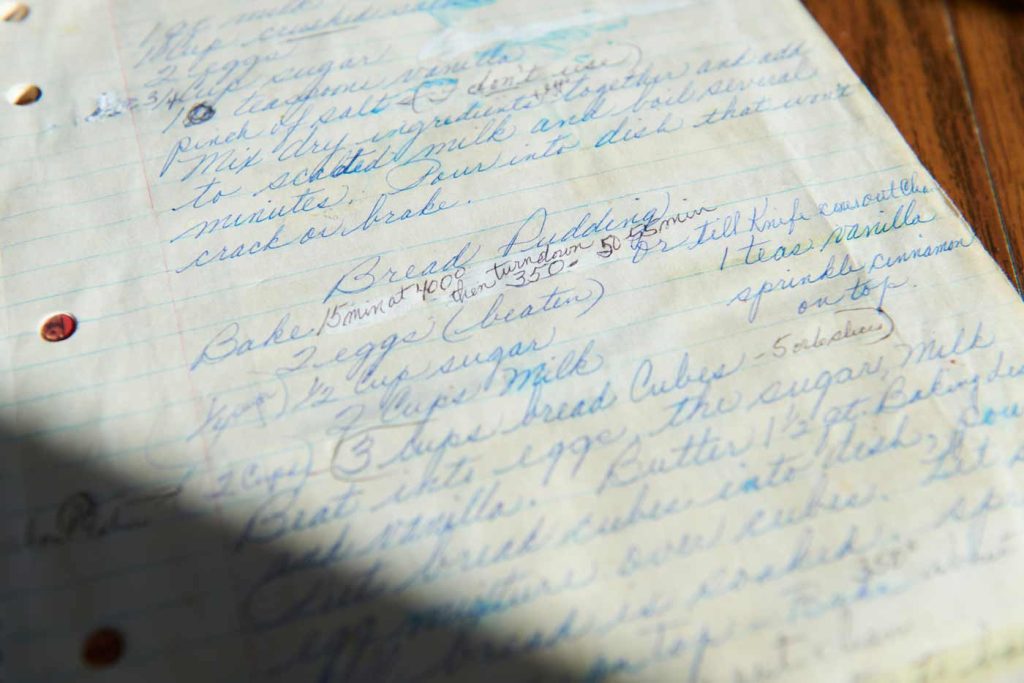 1 Qt milk
1 Cup crushed
2 eggs
3/4 cup sugar
1 teaspoons vanilla
pinch of salt - (don't use)
Mix dry ingredients together and add
to scalded milk and boil several
minutes. Pour into dish that won't
crack or brake.
Bread Pudding
Bake 15 min at 400° then turn down 350° - 50 55 min or till Knife comes out Clea
2 eggs (beaten)
1 teas vanilla
1/2 Cup sugar
sprinkle cinnamon
on top.
2 Cups Milk
2 Cups) 3 Cups bread Cubes - 5
Beat into eggs, the sugar, Milk
and vanilla. Butter 1 1/2 qt Baking
Put bread cubes into dish,
egg mixture over cubes. Let
bread is soaked.
on Top - 350°